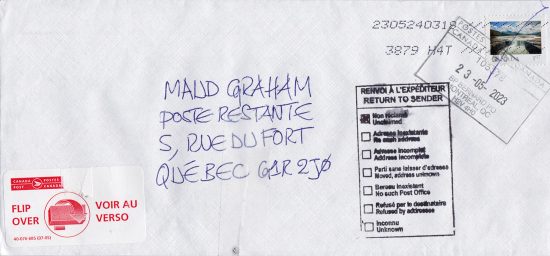 2305240319
3879 H4T
CANADA
POSTES
CANADA
23-05-2023
MONTREAL QC
MAUD GRAHAM
POSTE RESTANTE
5, RUE DU FORT
QUÉBEC G1R 2J0
RENVOI À L'EXPÉDITEUR
RETURN TO SENDER
Non réclamé
Unclaimed
Adresse inexistante
No such address
Adresse incomplet
Address incomplete
Parti sans laisser d'adresse
Moved, address unknown
Bureau inexistant
No such Post Office
Refusé par le destinataire
Refused by addressee
Inconnu
Unknown
CANADA POST
POSTES CANADA
FLIP OVER
VOIR AU VERSO
40-076-605 (07-01)